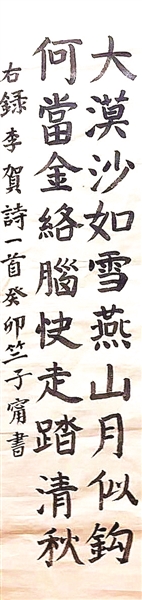 大漠沙如雪燕山月似鈎
何當金絡腦快走踏清秋
右録李賀詩一首癸卯竺子甯書